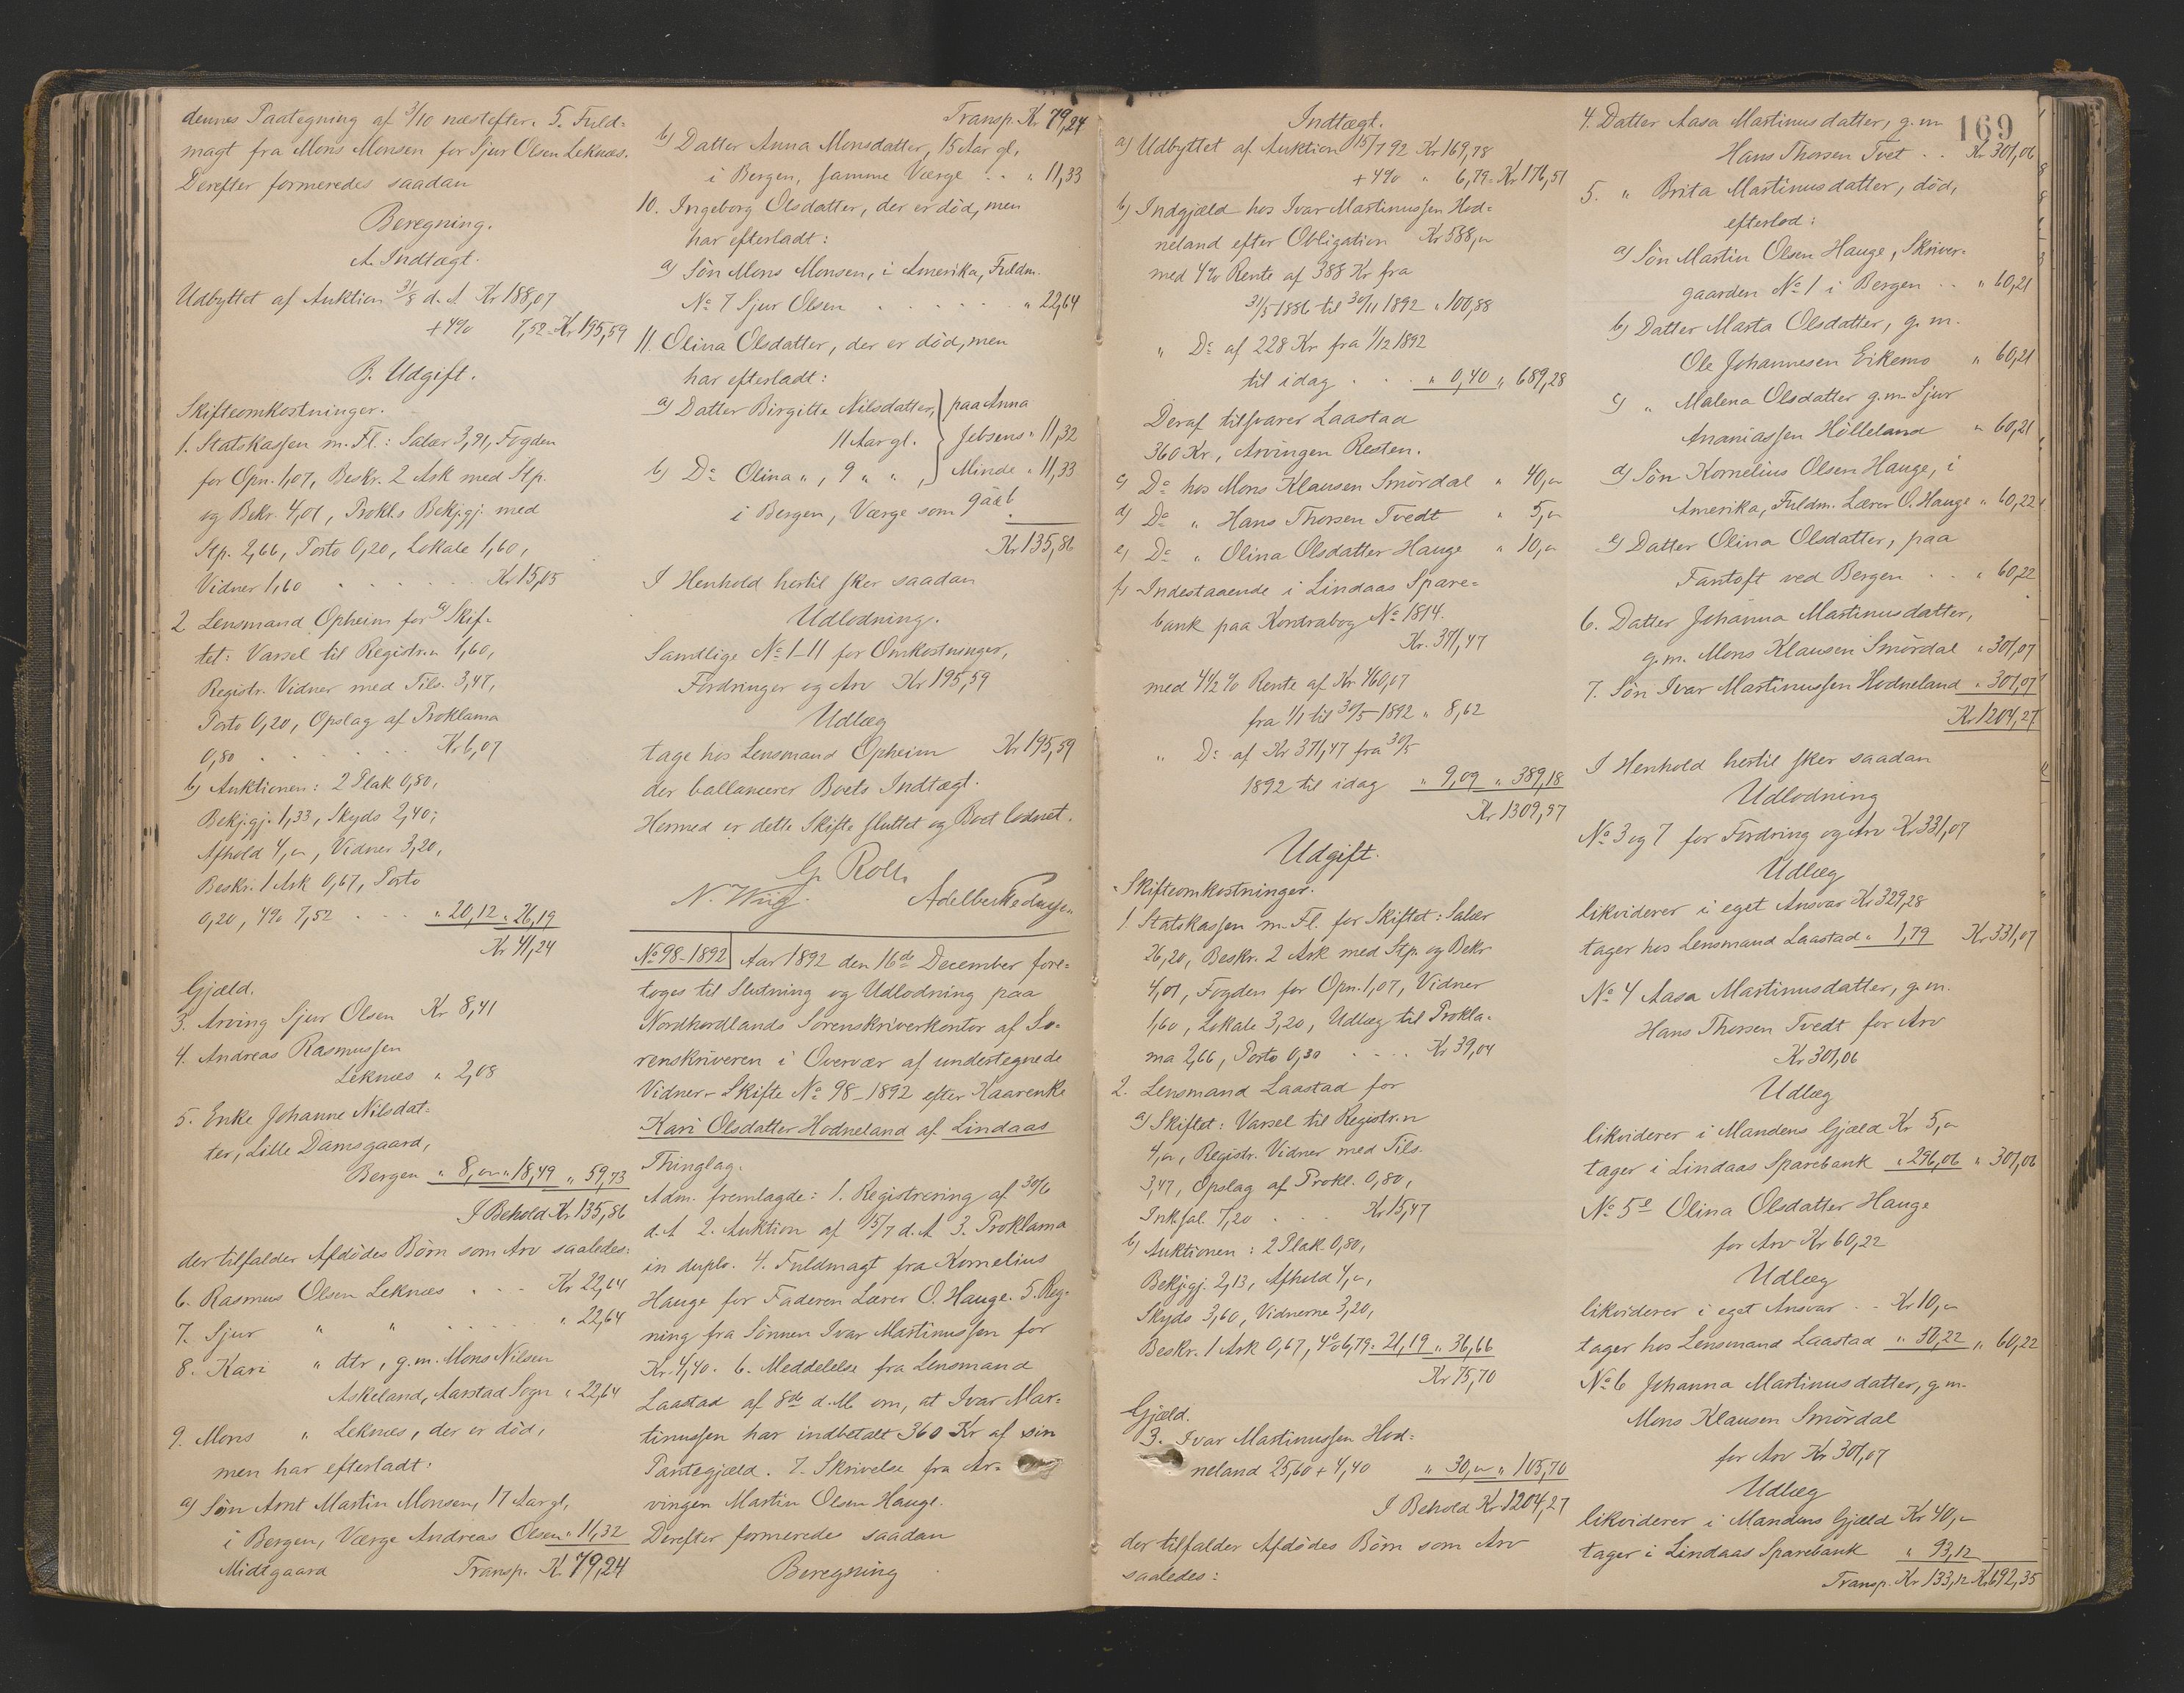 dennes Paategning af 3/10 næstefter. 5. Fuld-
magt fra Mons Monsen for Sjur Olsen Leknæs.
Derefter formeredes saadan
Beregning.
A. Indtægt.
Udbyttet af Auktion 31/8 d. A Kr 188,07
+4% 7,52 - Kr 195,59
B. Udgift.
Skifteomkostninger.
1. Statskassen m. Fl.: Salær 3,91, Fogden
for Opn. 1,07, Beskr. 2 Ark med Stp.
og Bekr. 4,01, Prokl.s Bekj.gj. med
Stp. 2,66, Porto 0,20, Lokale 1,60,
Vidner 1,60 . . . . Kr 15,05
2 Lensmand Opheim for a) Skif-
tet: Varsel til Registr.n 1,60,
Registr. Vidner med Tils. 3,47,
Porto 0,20, Opslag af Proklama
0,80 . . . . . Kr 6,07
b) Auktionen: 2 Plak 0,80,
Bekj.gj. 1,33, Skyds 2,40;
Afhold 4,„, Vidner 3,20,
Beskr. 1 Ark 0,67, Porto
0,20, 4% 7,52 . . . „ 20,12 „ 26,19
Kr 41,24
Gjæld.
3. Arving Sjur Olsen Kr 8,41
4. Andreas Rasmussen
Leknæs „ 2,08
5. Enke Johanne Nilsdat-
ter, Lille Damsgaard,
Bergen „ 8,„ „ 18,49 „ 59,73
I Behold Kr 135,86
der tilfalder Afdødes Børn som Arv saaledes:
6. Rasmus Olsen Leknæs . . . Kr 22,64
7. Sjur „ „ . . . . „ 22,64
8. Kari „ dtr, g. m. Mons Nilsen
Askeland, Aarstad Sogn „ 22,64
9. Mons „ Leknæs, der er død,
men har efterladt:
a) Søn Arnt Martin Monsen, 17 Aar gl,
i Bergen, Værge Andreas Olsen „ 11,32
Midtgaard Transp. Kr 79,24
Transp. Kr 79,24
b) Datter Anna Monsdatter, 15 Aar gl,
i Bergen, samme Værge . . „ 11,33
10. Ingeborg Olsdatter, der er død, men
har efterladt:
a) Søn Mons Monsen, i Amerika, Fuldm.
No 7 Sjur Olsen . . . . . „ 22,64
11. Olina Olsdatter, der er død, men
har efterladt:
a) Datter Birgitte Nilsdatter, } paa Anna
11 Aar gl. } Jebsens „ 11,32
b) Do Olina „ , 9 „ „ , } Minde „ 11,33
i Bergen, Værge som 9 a & b
Kr 135,86
I Henhold hertil sker saadan
Udlodning.
Samtlige No 1-11 for Omkostninger,
Fordringer og Arv Kr 195,59
Udlæg
tage hos Lensmand Opheim Kr 195,59
der ballancerer Boets Indtægt.
Hermed er dette Skifte sluttet og Boet loddet.
G. Roll.
N. Wiig.
No 98-1892 Aar 1892 den 16de December fore-
toges til Slutning og Udlodning paa
Nordhordlands Sorenskriverkontor af So-
renskriveren i Overvær af undertegnede
Vidner - Skifte No 98-1892 efter Kaarenke
Kari Olsdatter Hodneland af Lindaas
Thinglag.
Adm. fremlagde: 1. Registrering af 30/6
d. A 2. Auktion af 15/7 d. A 3. Proklama
in duplo. 4. Fuldmagt fra Kornelius
Hauge for Faderen Lærer O. Hauge. 5. Reg-
ning fra Sønnen Ivar Martinussen for
Kr. 4,40. 6. Meddelelse fra Lensmand
Laastad af 8de d. M. om, at Ivar Mar-
tinussen har indbetalt 360 Kr af sin
Pantegjæld. 7. Skrivelse fra Ar-
vingen Martin Olsen Hauge.
Derefter formeredes saadan
Beregning
Indtægt.
a) Udbyttet af Auktion 15/7 92 Kr 169,78
+4% „ 6,79 - Kr 176,57
b) Indgjæld hos Ivar Martinussen Hod-
neland efter Obligation Kr 588,„
med 4% Rente af 388 Kr fra
31/5 1886 til 30/11 1892 „ 100,88
„ Do af 228 Kr fra 1/12 1892
til idag . . . „ 0,40 „ 689,28
Deraf tilsvarer Laastad
360 Kr, Arvingen Resten.
c) Do hos Mons Klausen Smørdal „ 40,„
d) Do „ Hans Thorsen Tvedt „ 5,„
e) Do „ Olina Olsdatter Hauge „ 10,„
f) Indestaaende i Lindaas Spare-
bank paa Kontrabog No 1814.
Kr. 371,47
med 4 1/2 % Rente af Kr 460,07
fra 1/1 til 30/5 1892 „ 8,62
„ Do af Kr 371,47 fra 30/5
1892 til idag „ 9,09 „ 389,18
Kr 1309,97
Udgift.
Skifteomkostninger.
1. Statskassen m. Fl. for Skiftet: Salær
26,20, Beskr. 2 Ark med Stp. og Bekr
4,01, Fogden for Opn. 1,07, Vidner
1,60, Lokale 3,20, Udlæg til Prokla-
ma 2,66, Porto 0,30 . . . . Kr 39,04
2. Lensmand Laastad for
a) Skiftet: Varsel til Registr.n
4,„, Registr. Vidner med Tils.
3,47, Opslag af Prokl. 0,80,
Ink.sal. 7,20 . . . Kr 15,47
b) Auktionen: 2 Plak. 0,80,
Bekj.gj. 2,13, Afhold 4,„,
Skyds 3,60, Vidnerne 3,20,
Beskr. 1 Ark 0,67, 4% 6,79 „ 21,19 „ 36,66
Kr 75,70
Gjæld.
3. Ivar Martinussen Hod-
neland 25,60 + 4,40 „ 30,„ „ 105,70
I Behold Kr 1204,27
der tilfalder Afdødes Børn som Arv
saaledes:
169
4. Datter Aasa Martinusdatter, g. m
Hans Thorsen Tvet . . Kr 301,06
5. „ Brita Martinusdatter, død,
efterlod:
a) Søn Martin Olsen Hauge, Skriver-
gaarden No 1 i Bergen . . „ 60,21
b) Datter Marta Olsdatter, g. m.
Ole Johannesen Eikemo „ 60,21
c) „ Malena Olsdatter g. m. Sjur
Ananiassen Hölleland „ 60,21
d) Søn Kornelius Olsen Hauge, i
Amerika, Fuldm. Lærer O. Hauge „ 60,22
e) Datter Olina Olsdatter, paa
Fantoft ved Bergen . . „ 60,22
6. Datter Johanna Martinusdatter,
g. m. Mons Klausen Smørdal „ 301,07
7. Søn Ivar Martinussen Hodneland „ 301,07
Kr 1204,27
I Henhold hertil sker saadan
Udlodning
No 3 og 7 for Fordring og Arv Kr 331,07
Udlæg
likviderer i eget Ansvar Kr 329,28
tager hos Lensmand Laastad „ 1,79 Kr 331,07
No 4 Aasa Martinusdatter, g. m.
Hans Thorsen Tvedt for Arv
Kr 301,06
Udlæg
likviderer i Mandens Gjæld Kr 5,„
tager i Lindaas Sparebank „ 296,06 „ 301,06
No 5 e Olina Olsdatter Hauge
for Arv Kr 60,22
Udlæg
likviderer i eget Ansvar . . Kr 10,„
tager hos Lensmand Laastad „ 50,22 „ 60,22
No 6 Johanna Martinusdatter, g. m.
Mons Klausen Smørdal
for Arv Kr 301,07
Udlæg
likviderer i Mandens Gjæld Kr 40,„
tager i Lindaas Sparebank „ 93,12
Transp. Kr 133,12 Kr 692,35